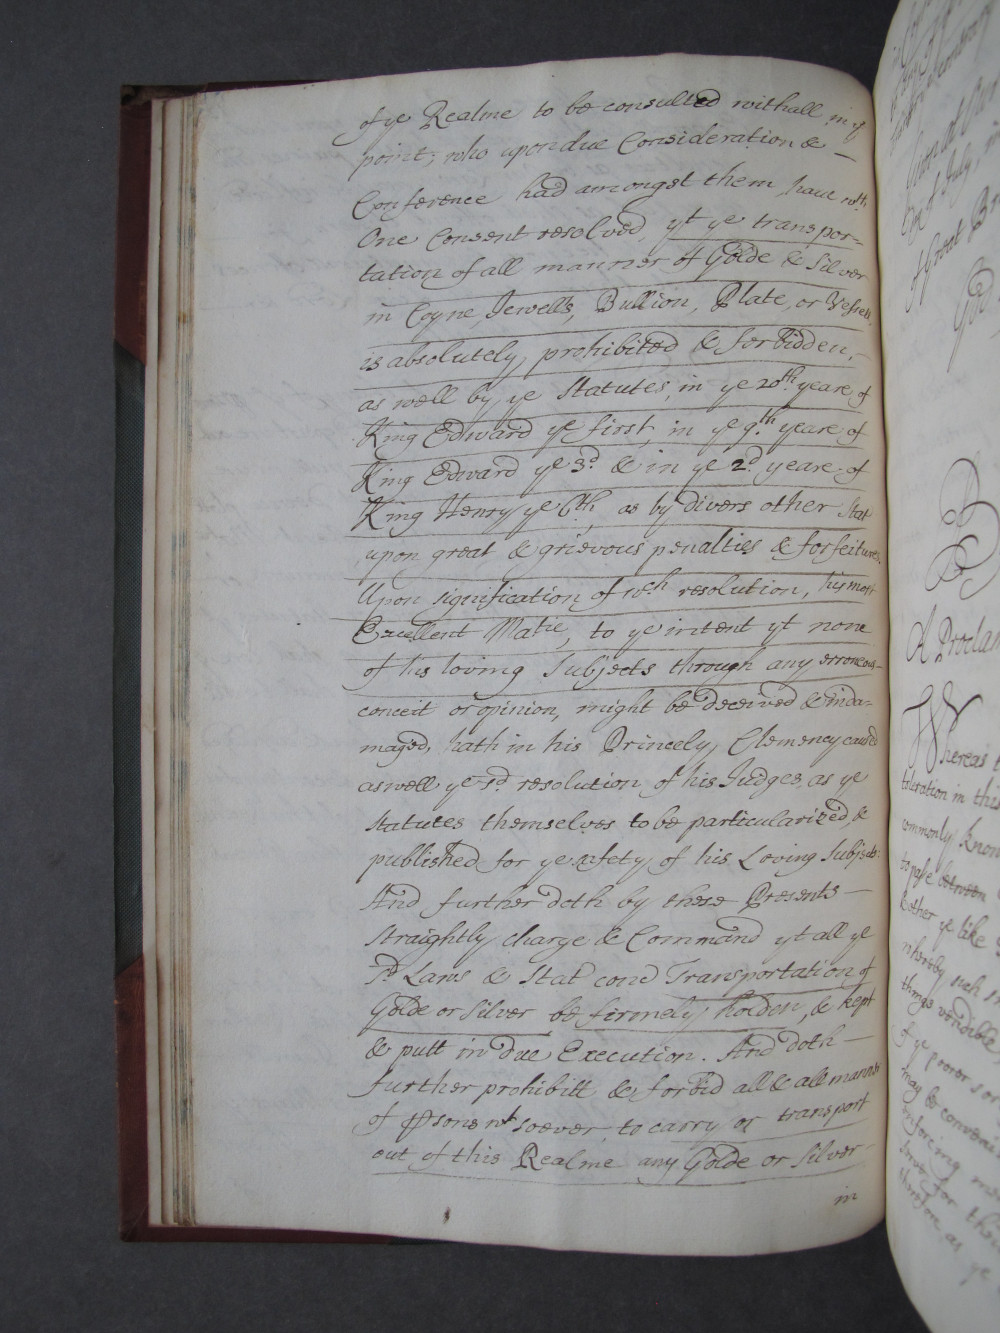 of ye Realme to be consulted withall in yt
point, who upon due Consideration &
Conference had amongst them have wth
One Consent resolved, yt ye transpor-
tation of all manner of Golde & Silver
in Coyne, Jewells, Bullion, Plate, or Vessell,
is absolutely prohibited & forbidden,
as well by ye Statutes, in ye 20th yeare of
King Edward ye first, in ye 9th yeare of
King Edward ye 3d. & in ye 2d. yeare of
King Henry ye 6th, as by divers other Stat
upon great & grievous penalties & forfeitures.
Upon signification of wch resolution, his most
Excellent Matie, to ye intent yt none
of his loving Subjects through any erroneous
conceit or opinion, might be deceived & inda-
maged, hath in his Princely Clemency caused
aswell ye sd. resolution of his Judges, as ye
Statutes themselves to be particularized, &
published for ye safety of his Loving Subjects:
And further doth by these Presents
straightly charge & Command yt all ye
sd Laws & Stat conc Transportation of
Golde or Silver be firmely holden, & kept
& putt in due Execution. And doth
further prohibitt & forbid all & all manner
of psons wtsoever, to carry or transport
out of this Realme any Golde or Silver
in
A Proclam
Whereas
tileration in this
commonly know
to passe between
& other ye like
whereby such
things vendible
may be
inforcing